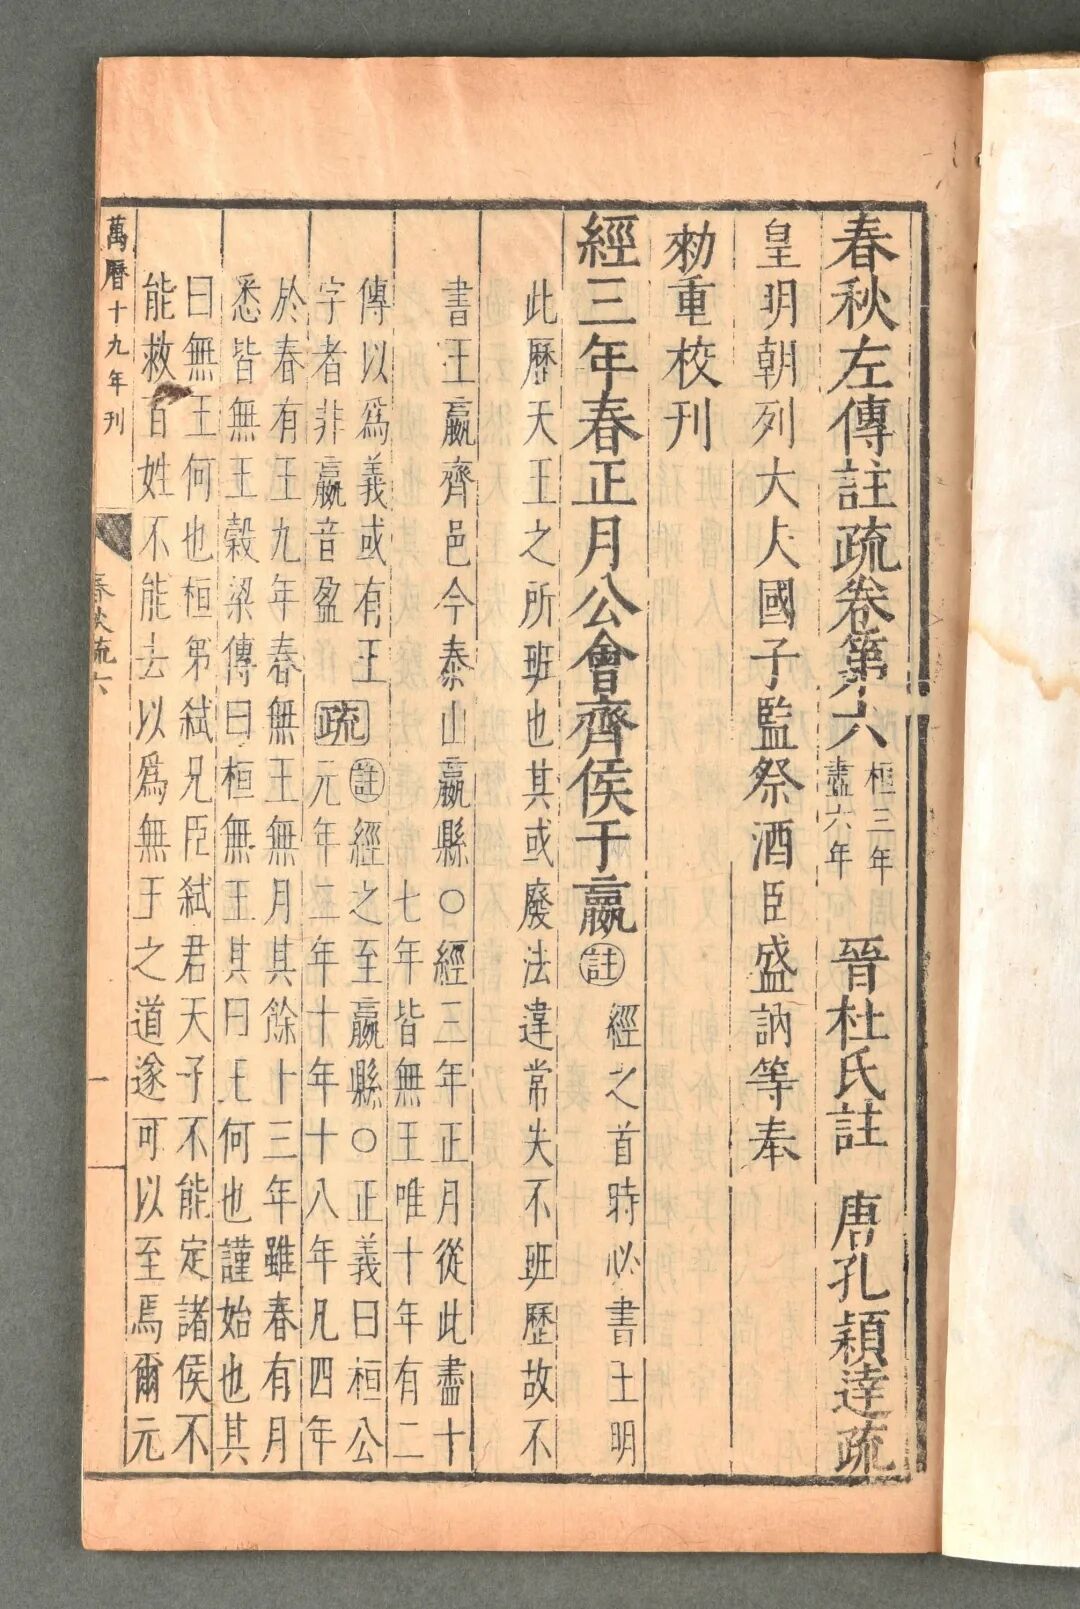 春秋左傳註疏卷第六 桓三年盡六年 晉杜氏註 唐孔穎達疏
皇明朝列大夫國子監祭酒臣盛訥等奉
勑重校刊
經三年春正月公會齊侯于嬴註經之首時必書王明
此歷天王之所班也其或廢法違常失不班歷故不
書王嬴齊邑今泰山嬴縣○經三年正月從此盡十
七年皆無王唯十年有二
傳以爲義或有王
字者非嬴音盈
疏
註經之至嬴縣○正義曰桓公
元年二年十年十八年凡四年
於春有王九年春無王無月其餘十三年雖春有月
悉皆無王穀梁傳曰桓無王其曰王何也謹始也其
曰無王何也桓弟弒兄臣弒君天子不能定諸侯不
能救百姓不能去以爲無王之道遂可以至焉爾元
萬曆十九年刊
春秋疏六
一